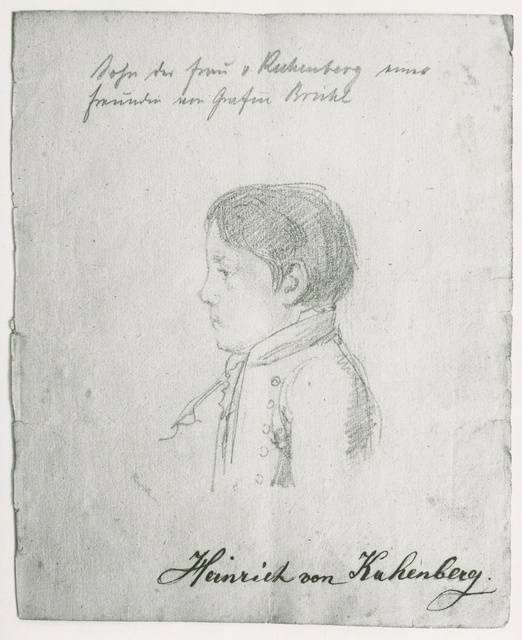 Sohn der Frau v Kuhenberg einer
Freundin von Gräfin Brühl
Heinrich von Kuhenberg.